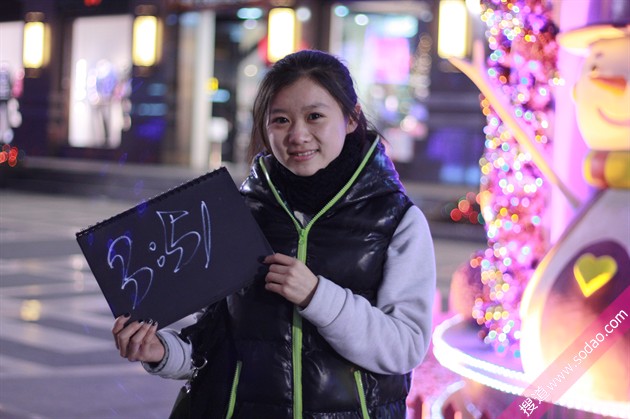 3:51
搜道www.sodao.com